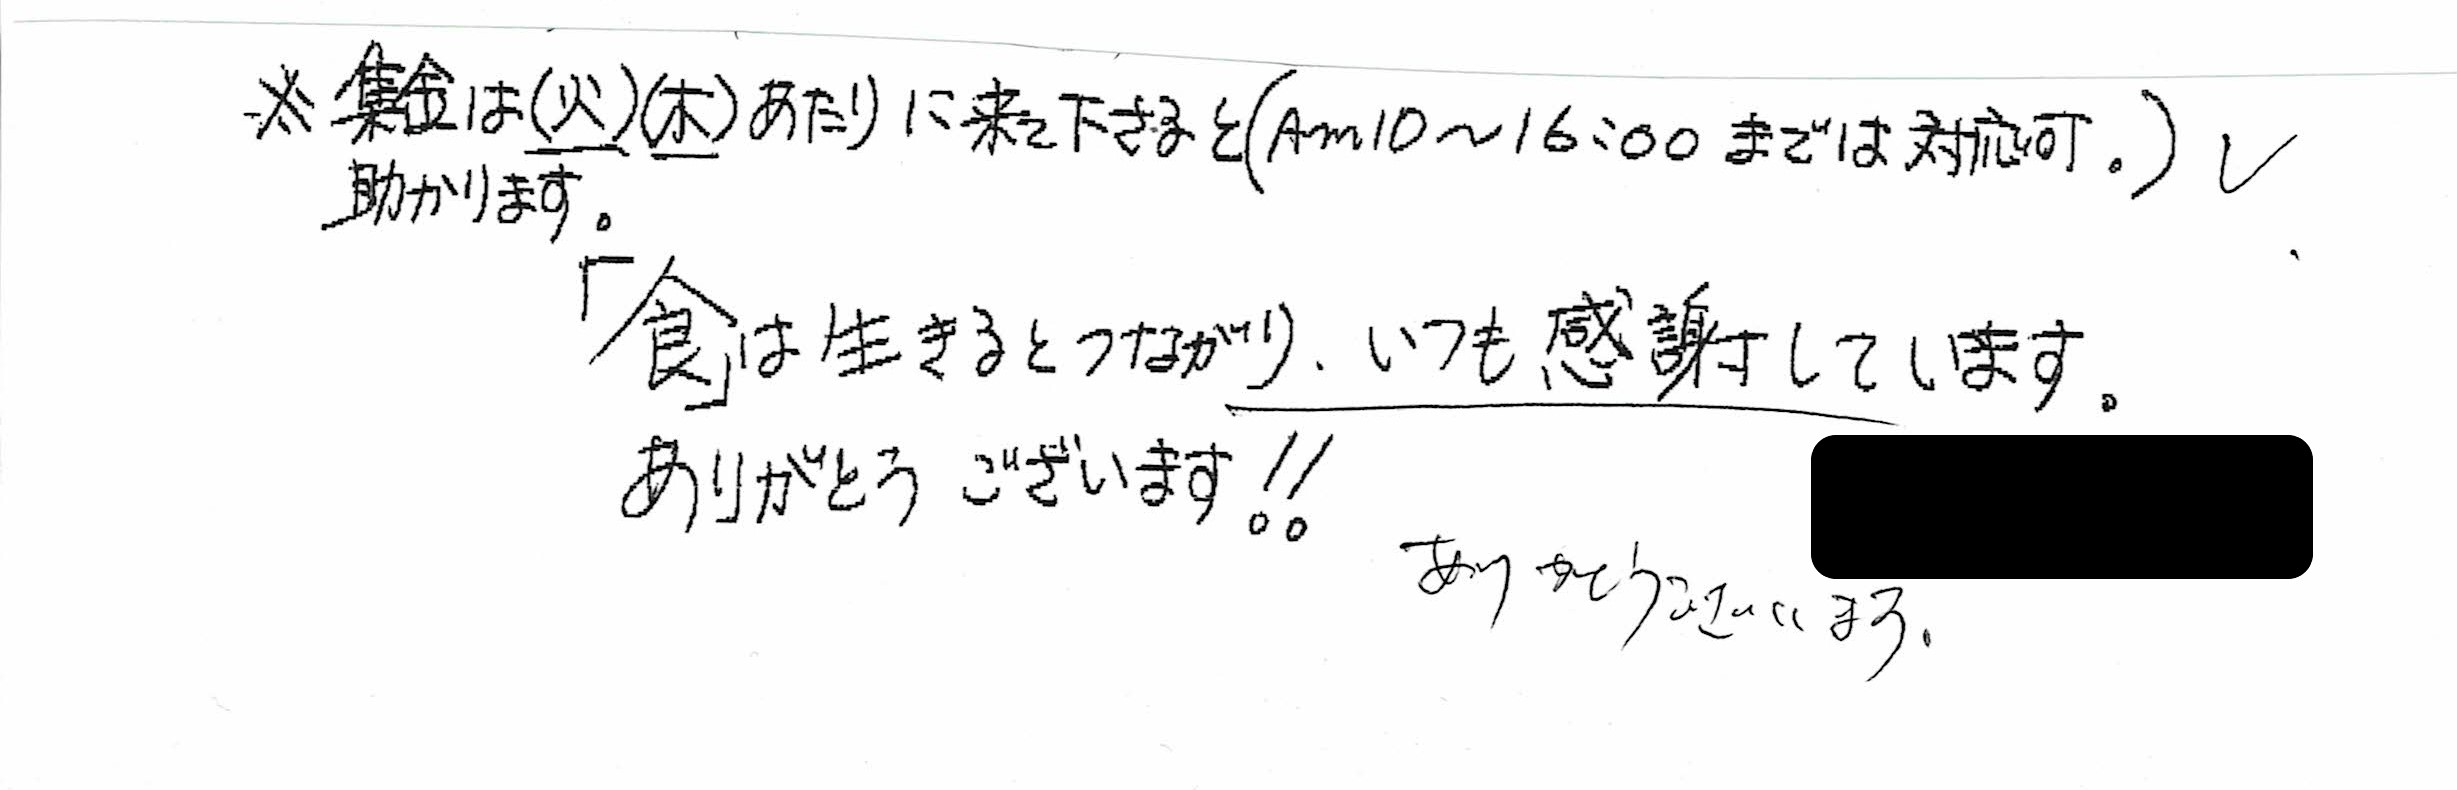 ※集金は(火)(木)あたりに来て下さると(Am10～16:00までは対応可。)
助かります。
「食」は生きるとつながり、いつも感謝しています。
ありがとうございます!!
ありがとうございます。